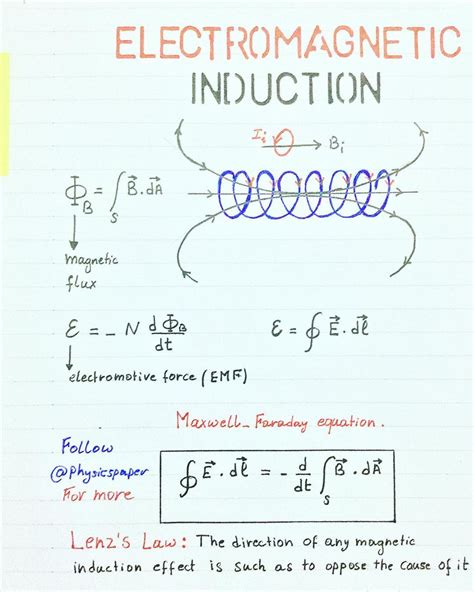 ELECTROMAGNETIC
INDUCTION
Iᵢ Bᵢ
Φ_B = ∫_S B⃗ . dA⃗
magnetic
flux
ℰ = - N dΦ_B/dt ℰ = ∮ E⃗ . dℓ⃗
electromotive force (EMF)
Maxwell_Faraday equation.
Follow
@physicspaper
For more
∮ E⃗ . dℓ⃗ = - d/dt ∫_S B⃗ . dA⃗
Lenz's Law: The direction of any magnetic
induction effect is such as to oppose the cause of it